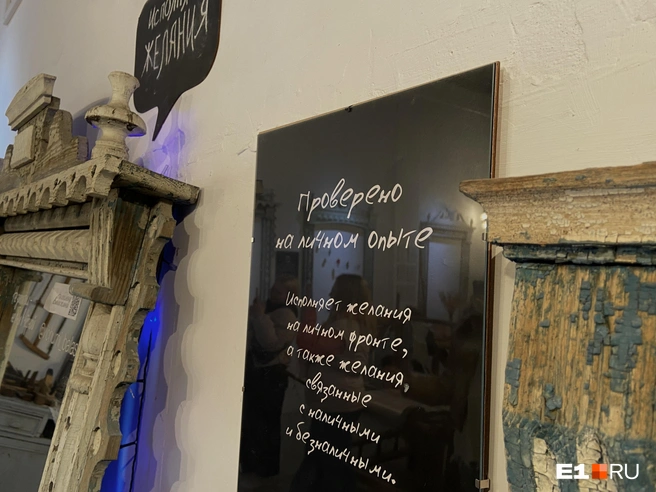 ЖЕЛАНИЯ
Проверено
на личном опыте
Исполняет желания
на личном фронте,
а также желания,
связанные
с наличными
и безналичными.
E1.RU